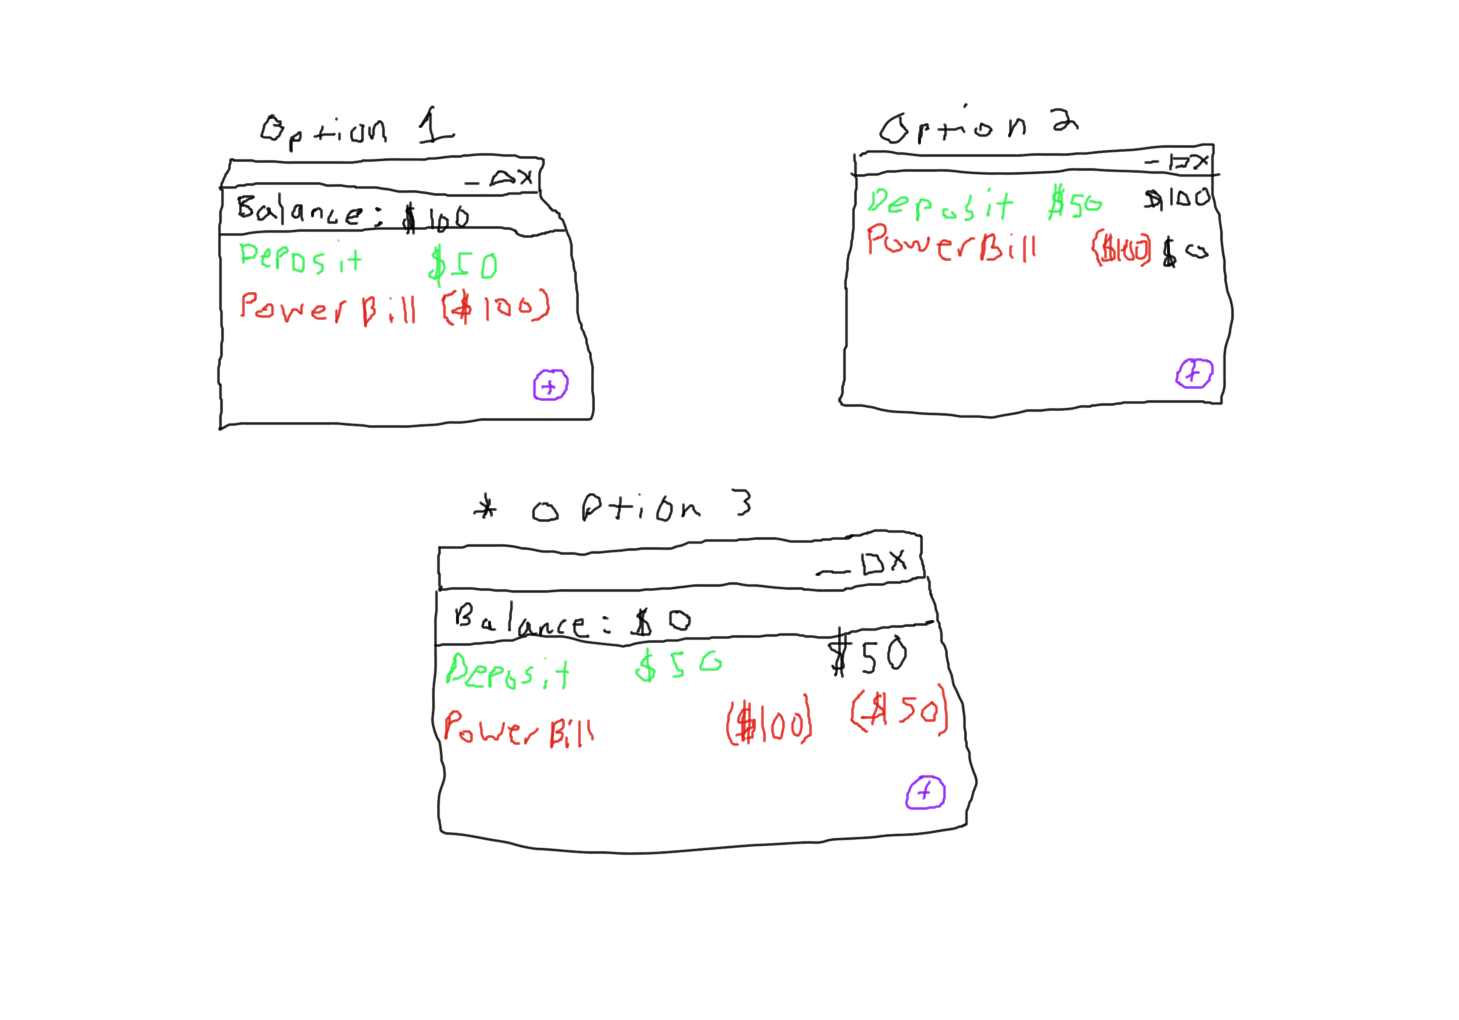 Option 1
- □ X
Balance: $100
Deposit $50
Power Bill ($100)
+
Option 2
- □ X
Deposit $50 $100
Power Bill ($100) $0
+
* Option 3
- □ X
Balance: $0
Deposit $50 $50
Power Bill ($100) ($50)
+